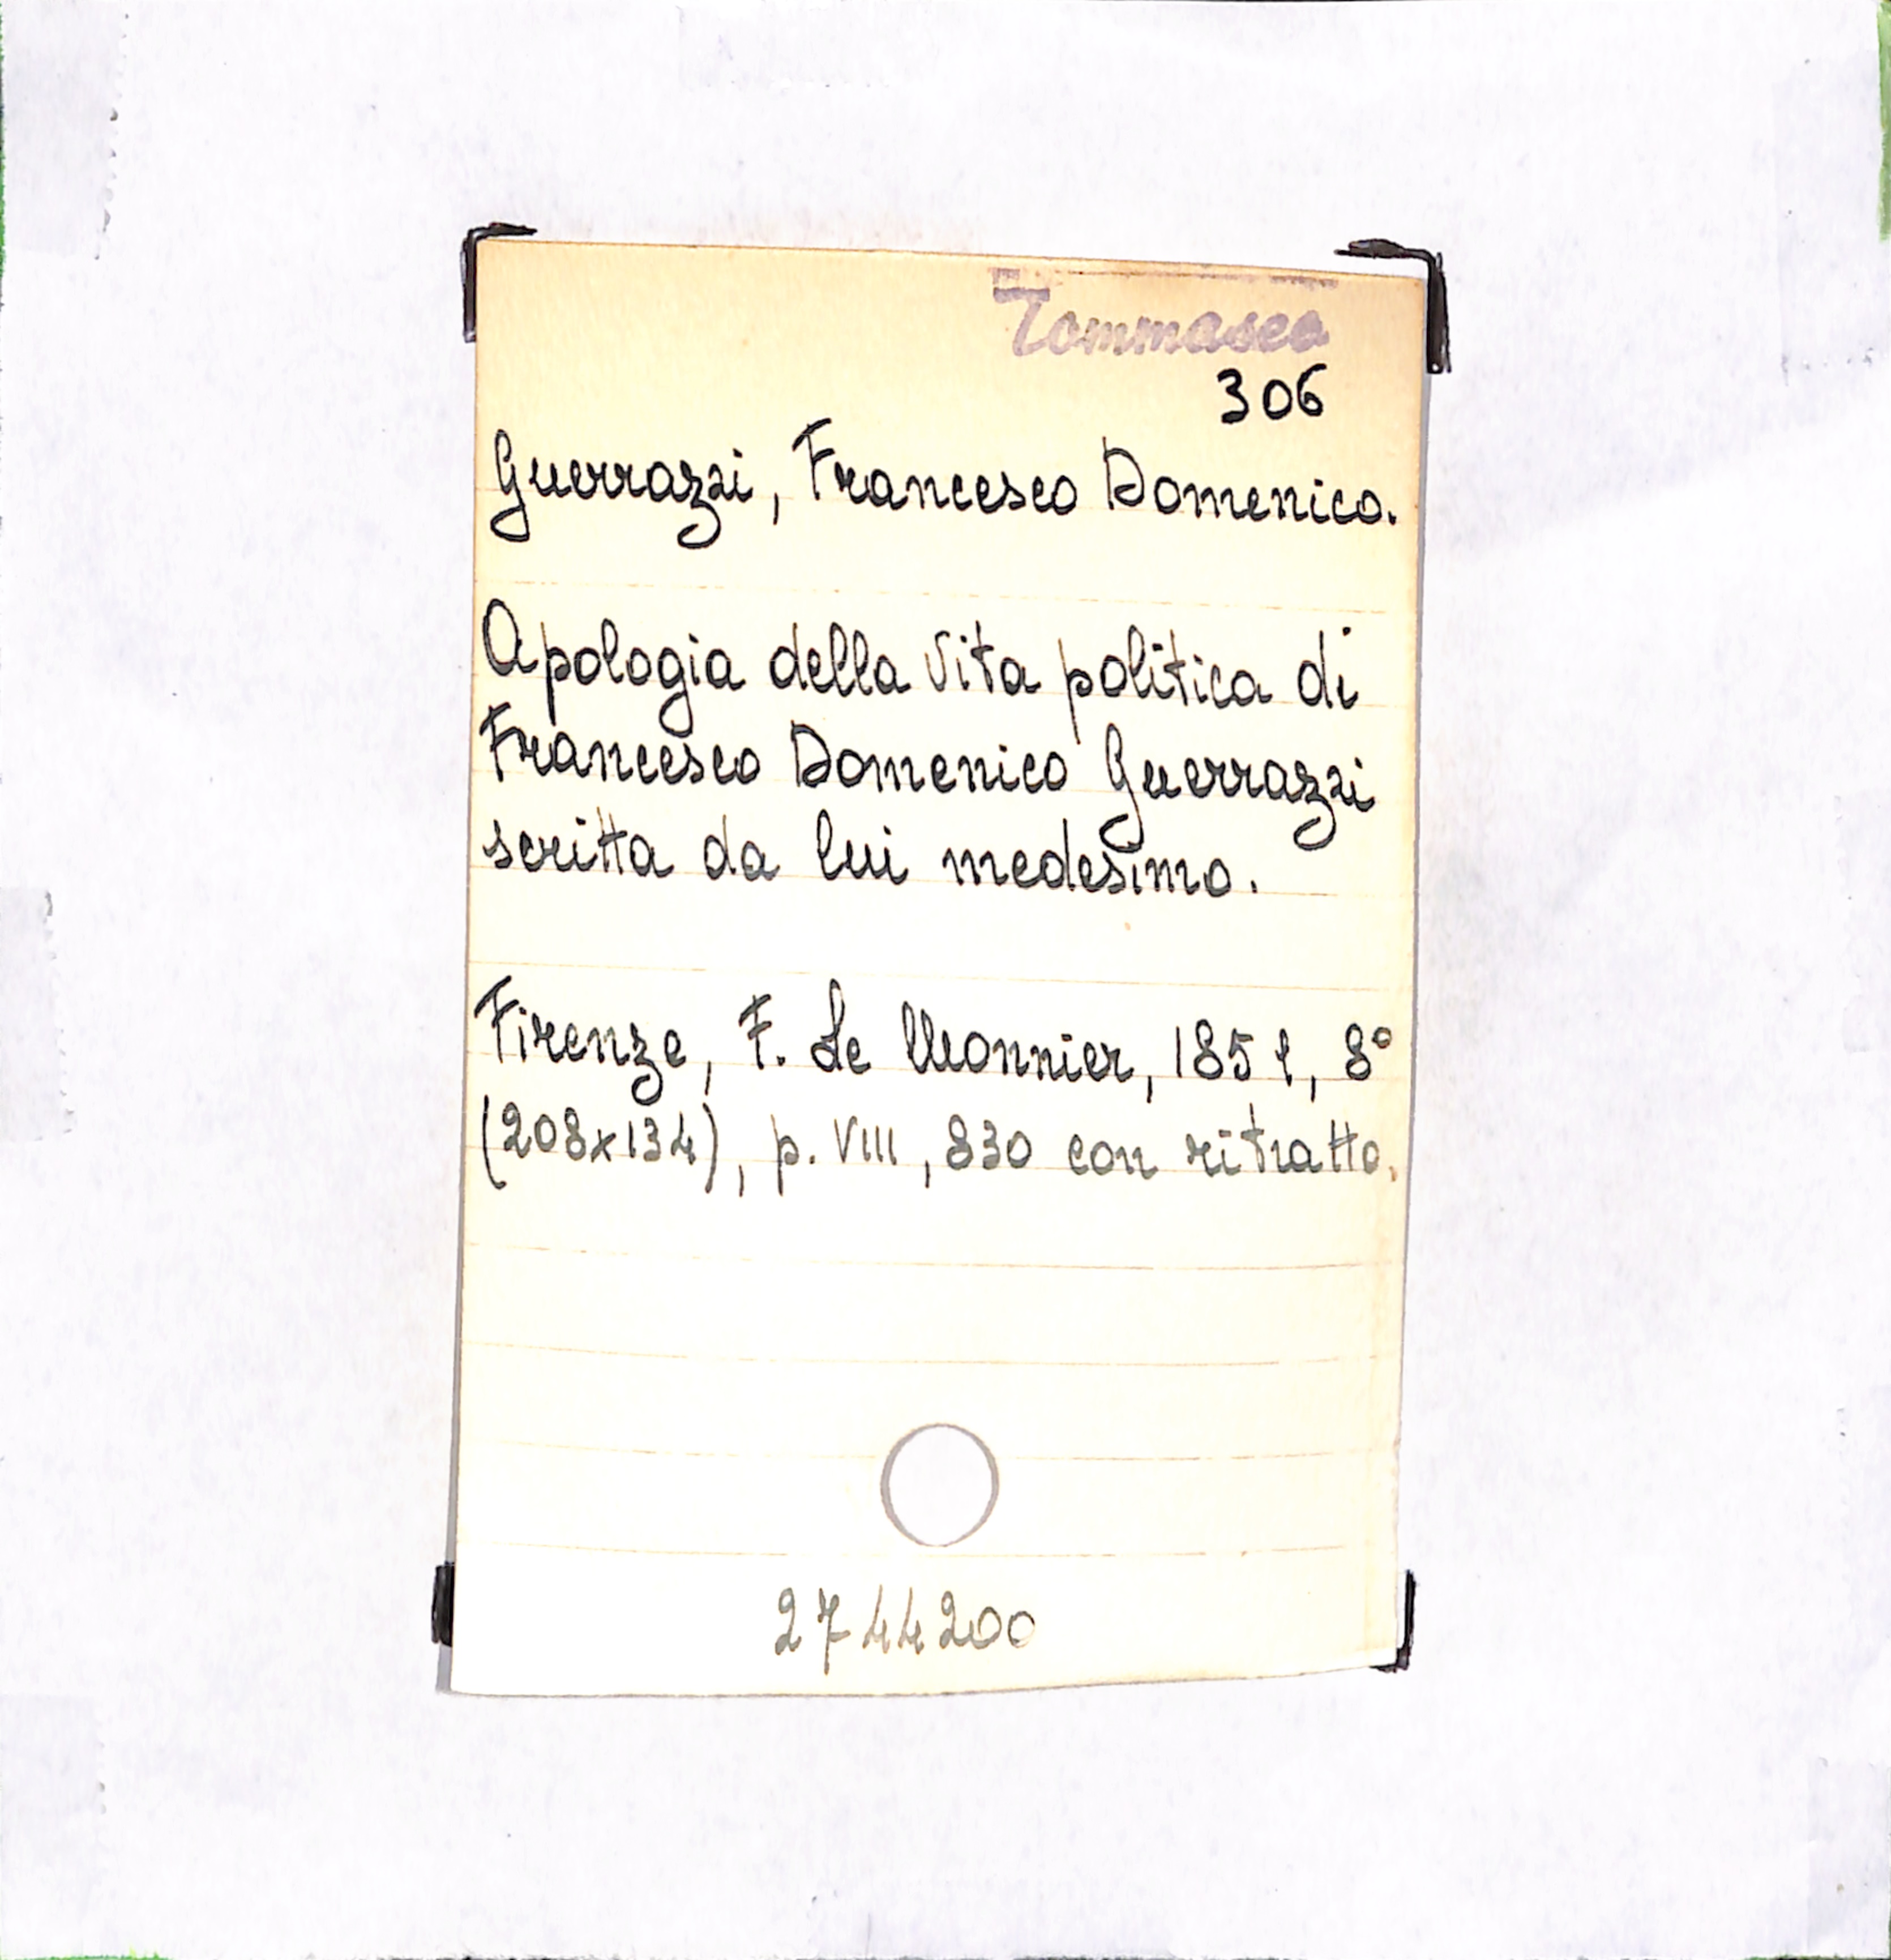 Tommaseo
306
Guerrazzi, Francesco Domenico.
Apologia della vita politica di
Francesco Domenico Guerrazzi
scritta da lui medesimo.
Firenze, F. Le Monnier, 1851, 8°
(208x134), p. VIII, 830 con ritratto.
2744200